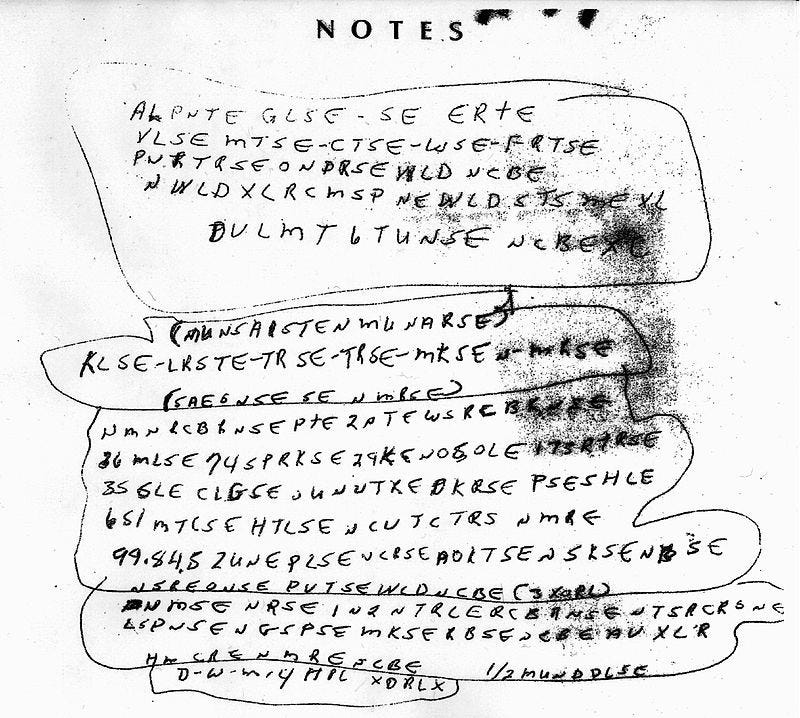 NOTES
ALPNTE GLSE-SE ERTE
VLSE MTSE-CTSE-WSE-FRTSE
PNRTRSE ONDRSE WLD NCBE
NWLDXLRCMSP NEWLDSTS ME XL
DULMT6TUNSE NCBEXC
(MUNSAISTEN MUNARSE)
KLSE-LRSTE-TRSE-TRSE-MKSEN-MRSE
(SAEGNSE SE N MRSE)
NMNRCBRNSE PTE 2PTEWSRCBRNSE
36 MLSE 74 SPRKSE 29KENOSOLE 173RTRSE
35 GLE CLGSE UNUTXE DKRSE PSESHLE
651 MTCSE HTLSE NCUTCTRS NMRE
99.84.5 2UNE PLSE NCRSE AOLTSE NSKSE NBSE
NSREONSE PUTSE WLD NCBE (3XORL)
NMSE NRSE IN2NTRLERCBRNSE NTSRCRSNE
LSPNSE NGSPSE MKSERBSE NCBE AUXLR
HM CRE NMRE NCBE 1/2 MUNDDLSE
D-W-M-4 MPL XDRLX